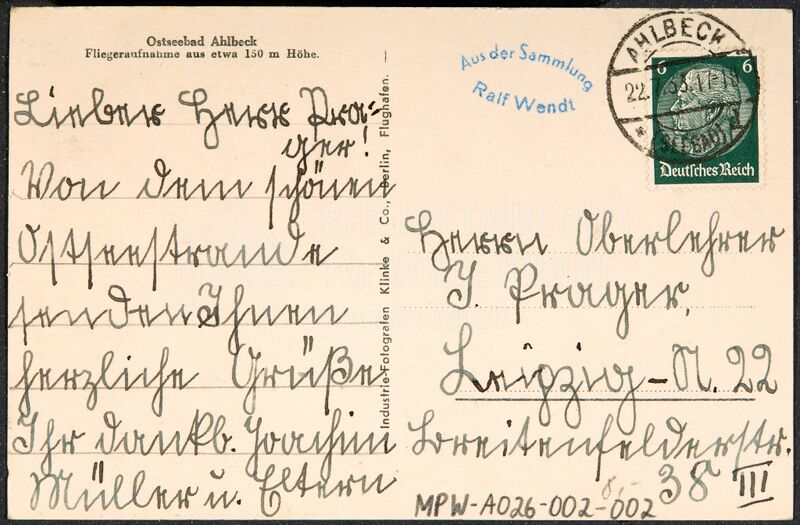 Ostseebad Ahlbeck
Fliegeraufnahme aus etwa 150 m Höhe.
Lieber Herr Pra-
ger!
Von dem schönen
Ostseestrande
senden Ihnen
herzliche Grüße
Ihr dankb. Joachim
Müller u. Eltern
Industrie-Fotografen Klinke & Co., Berlin, Flughafen.
Aus der Sammlung
Ralf Wendt
AHLBECK
22.7.33.17-18
(SEEBAD)
6 6
Deutsches Reich
Herrn Oberlehrer
J. Prager,
Leipzig-N. 22
Breitenfelderstr.
38 III
8,-
MPW-A026-002-002